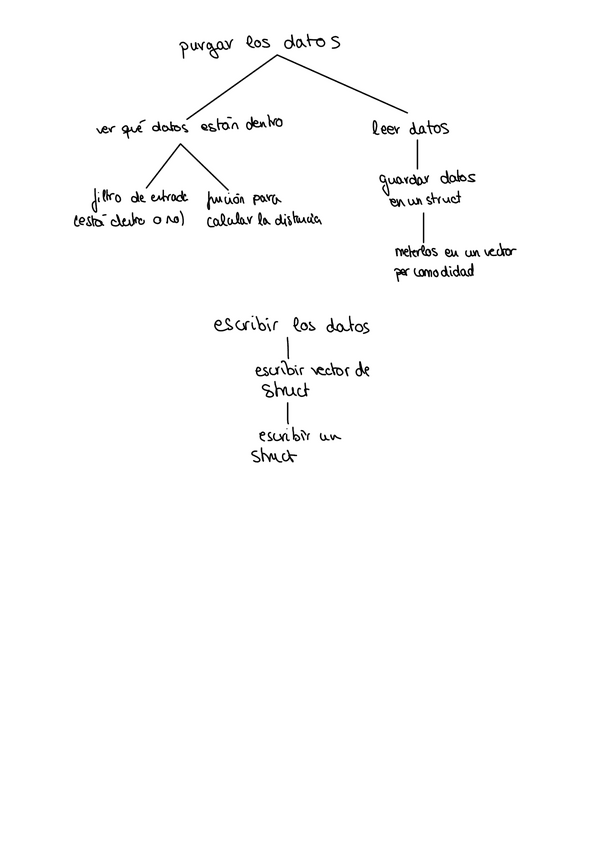 purgar los datos
ver qué datos están dentro
leer datos
filtro de entrada
(está dentro o no)
función para
calcular la distancia
guardar datos
en un struct
meterlos en un vector
por comodidad
escribir los datos
escribir vector de
struct
escribir un
struct